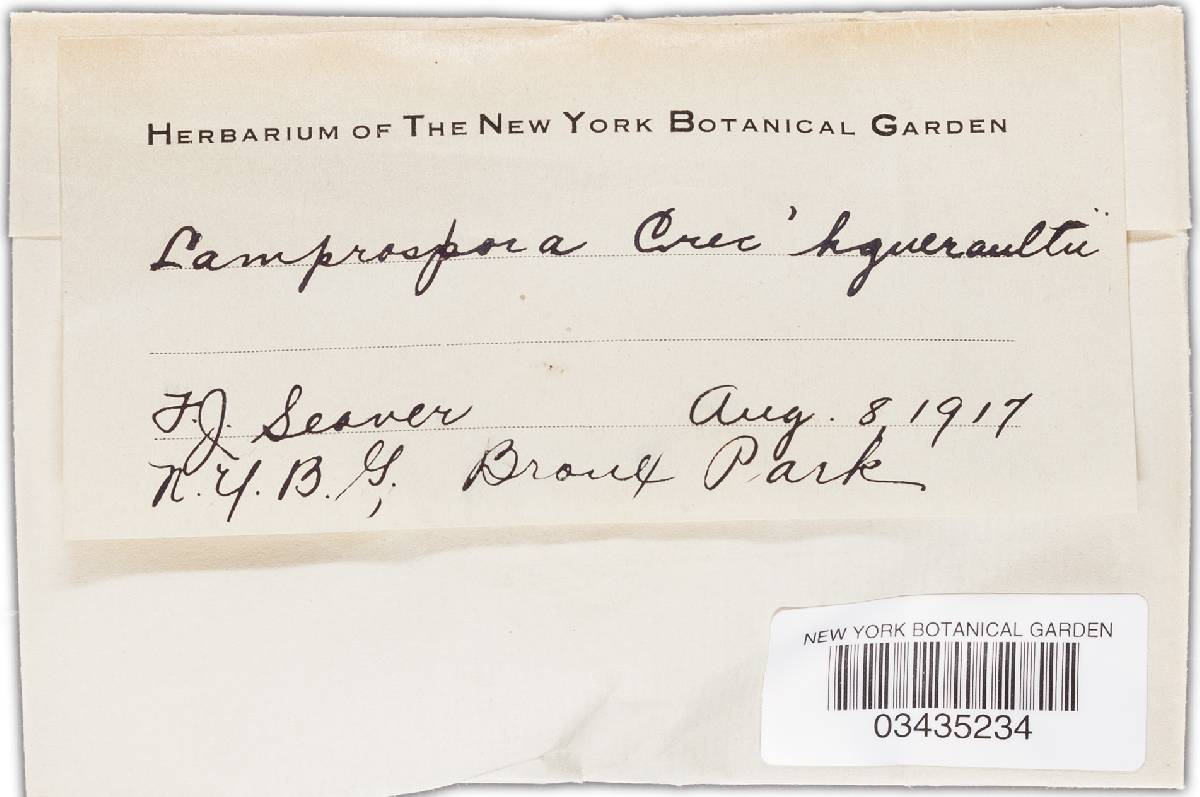 HERBARIUM OF THE NEW YORK BOTANICAL GARDEN
Lamprospora Crec'hqueraultii
F.J. Seaver Aug. 8, 1917
N.Y.B.G, Bronx Park
NEW YORK BOTANICAL GARDEN
03435234